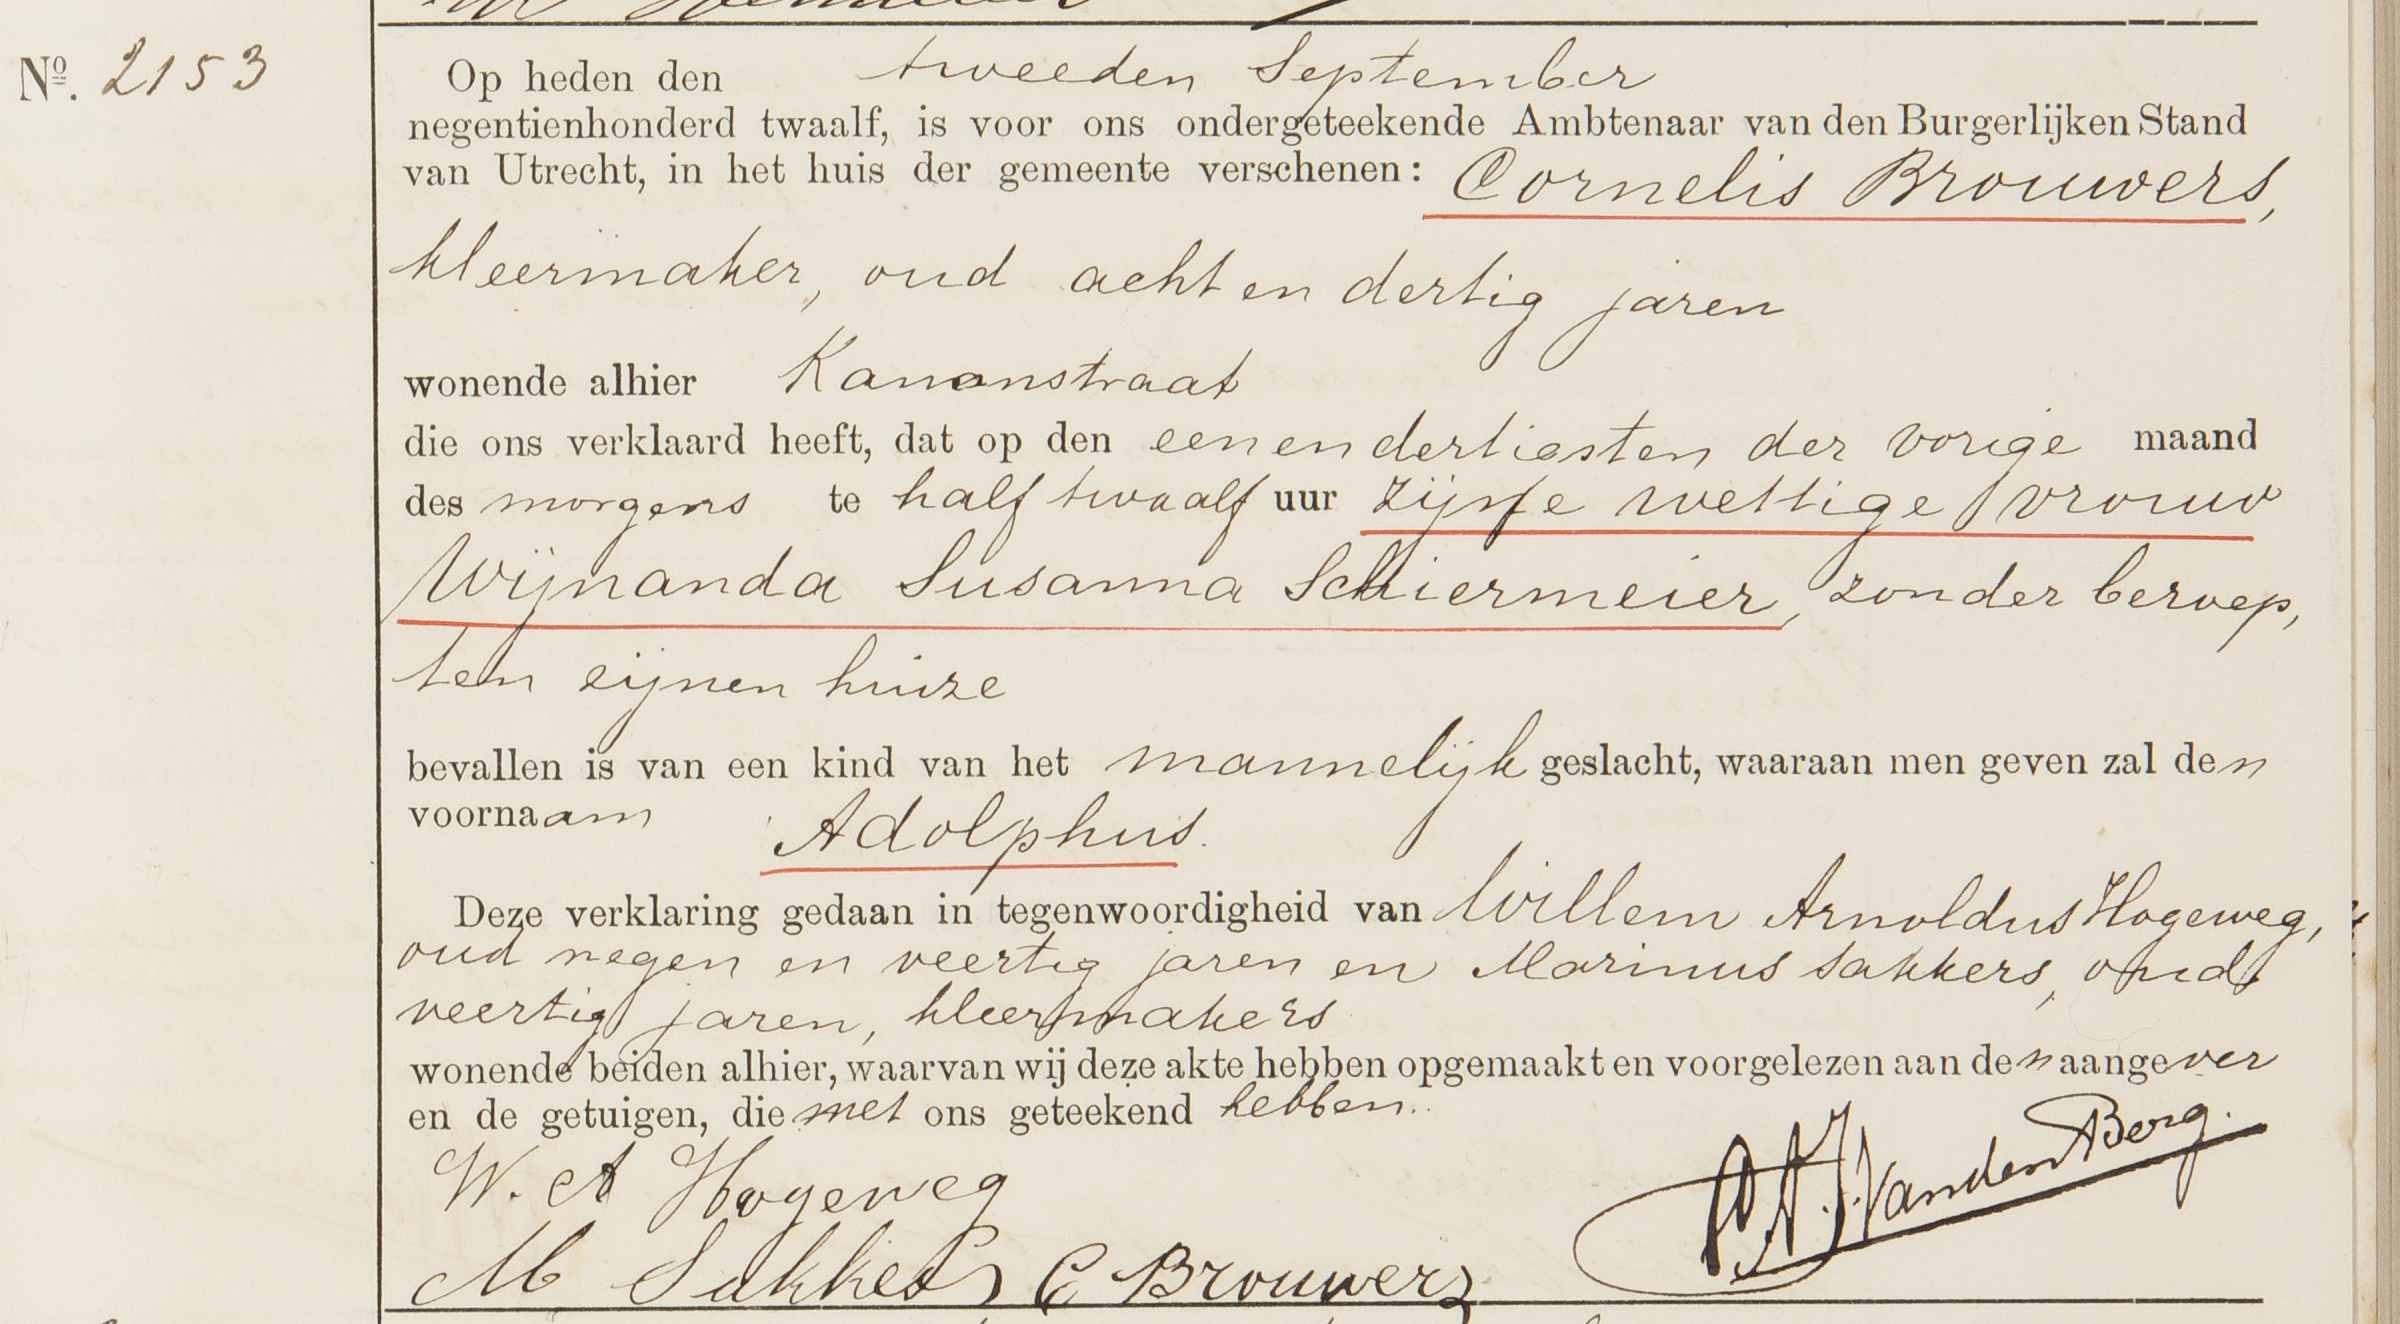 Nº. 2153
Op heden den tweeden September
negentienhonderd twaalf, is voor ons ondergeteekende Ambtenaar van den Burgerlijken Stand
van Utrecht, in het huis der gemeente verschenen: Cornelis Brouwers,
kleermaker, oud acht en dertig jaren
wonende alhier Kanonstraat
die ons verklaard heeft, dat op den een en dertiesten der vorige maand
des morgens te half twaalf uur zijne wettige vrouw
Wijnanda Susanna Schiermeier, zonder beroep,
ten zijnen huize
bevallen is van een kind van het mannelijk geslacht, waaraan men geven zal den
voornaam Adolphus.
Deze verklaring gedaan in tegenwoordigheid van Willem Arnoldus Hogeweg,
oud negen en veertig jaren en Marinus Sakkers, oud
veertig jaren, kleermakers
wonende beiden alhier, waarvan wij deze akte hebben opgemaakt en voorgelezen aan den aangever
en de getuigen, die met ons geteekend hebben.
W. A Hogeweg
M Sakkers C Brouwers
P A J. Van den Berg.